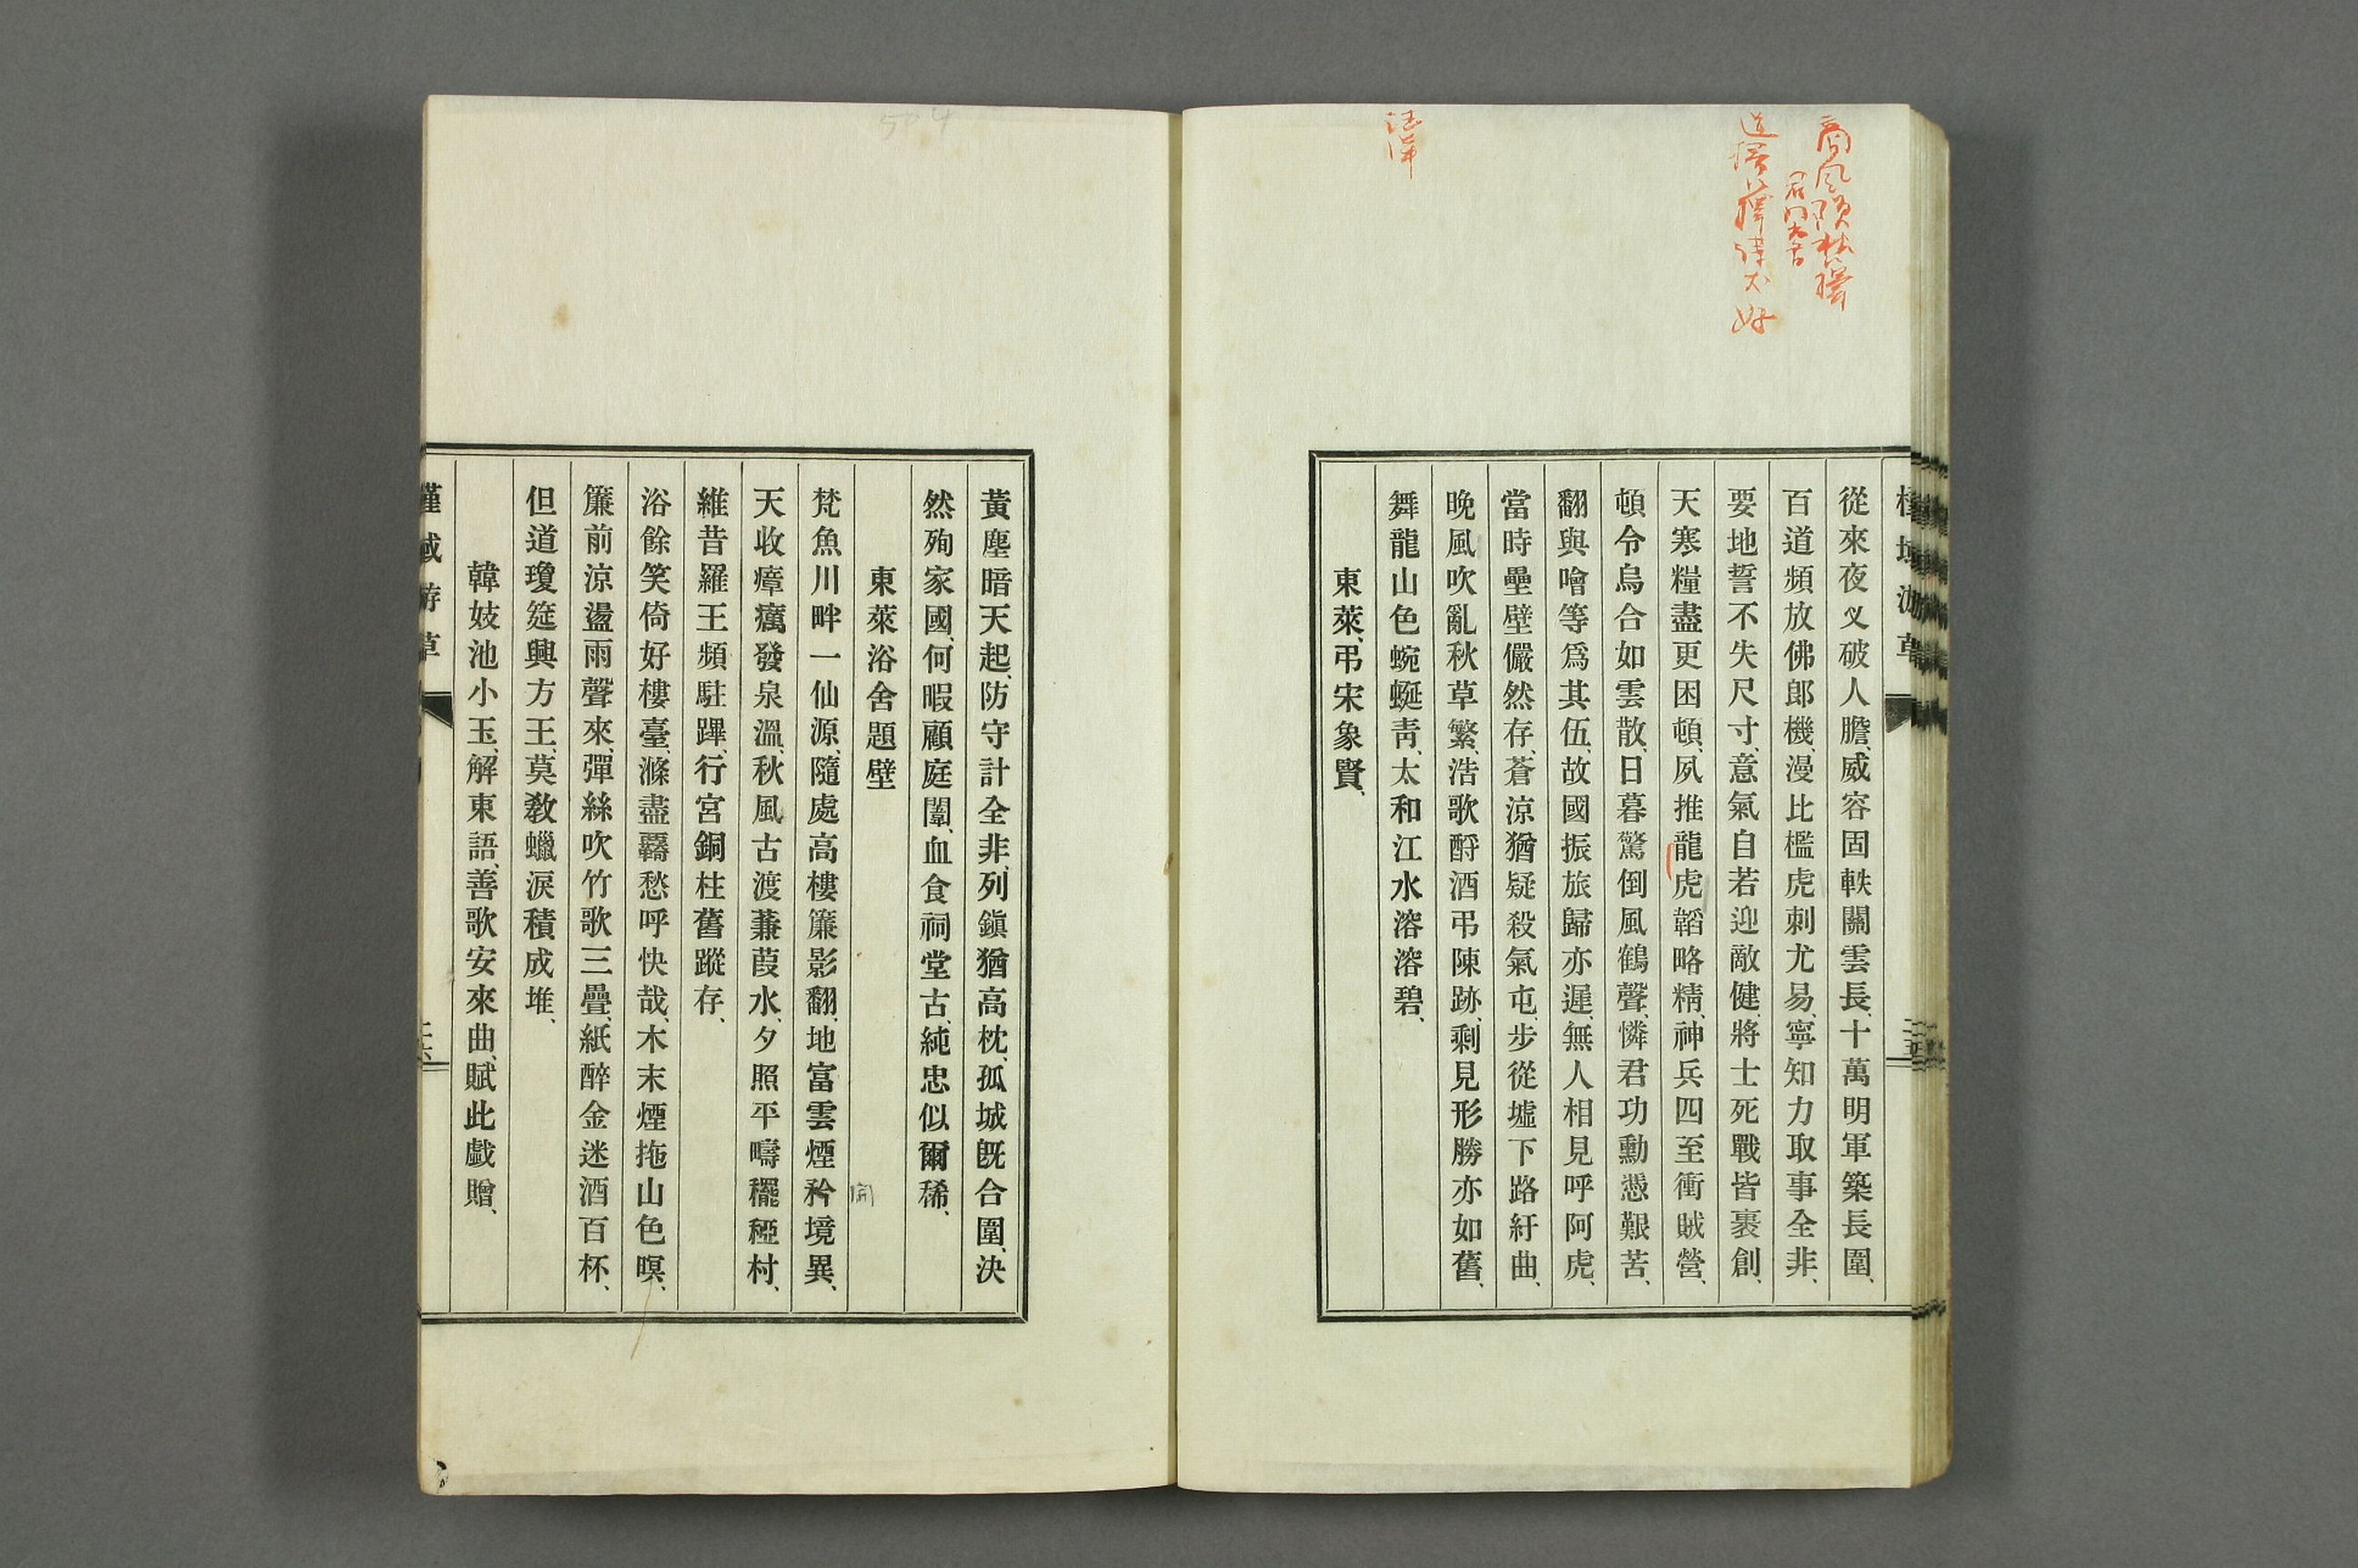 從來夜乂破人膽、威容固軼關雲長、十萬明軍築長圍、
百道頻放佛郎機、漫比檻虎刺尤易、寧知力取事全非、
要地誓不失尺寸、意氣自若迎敵健、將士死戰皆裹創、
天寒糧盡更困頓、夙推龍虎韜略精、神兵四至衝賊營、
頓令烏合如雲散、日暮驚倒風鶴聲、憐君功勳憑艱苦、
翻與噲等爲其伍、故國振旅歸亦遲、無人相見呼阿虎、
當時壘壁儼然存、蒼涼猶疑殺氣屯、步從墟下路紆曲、
晚風吹亂秋草繁、浩歌酹酒弔陳跡、剩見形勝亦如舊、
舞龍山色蜿蜒靑、太和江水溶溶碧、
東萊、弔宋象賢、
黃塵暗天起、防守計全非、列鎭猶高枕、孤城旣合圍、決
然殉家國、何暇顧庭闈、血食祠堂古、純忠似爾稀、
東萊浴舍題壁
梵魚川畔一仙源、隨處高樓簾影翻、地富雲煙矜境異、
天收瘴癘發泉溫、秋風古渡蒹葭水、夕照平疇䆉稏村、
維昔羅王頻駐蹕、行宮銅柱舊蹤存、
浴餘笑倚好樓臺、滌盡羈愁呼快哉、木末煙拖山色暝、
簾前涼盪雨聲來、彈絲吹竹歌三疊、紙醉金迷酒百杯、
但道瓊筵興方王、莫敎蠟淚積成堆、
韓妓池小玉、解東語、善歌安來曲、賦此戲贈、
槿域游草